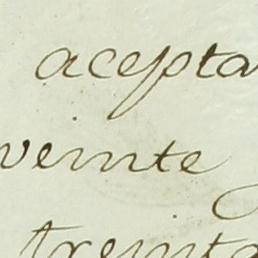 acepta
veinte
treinta